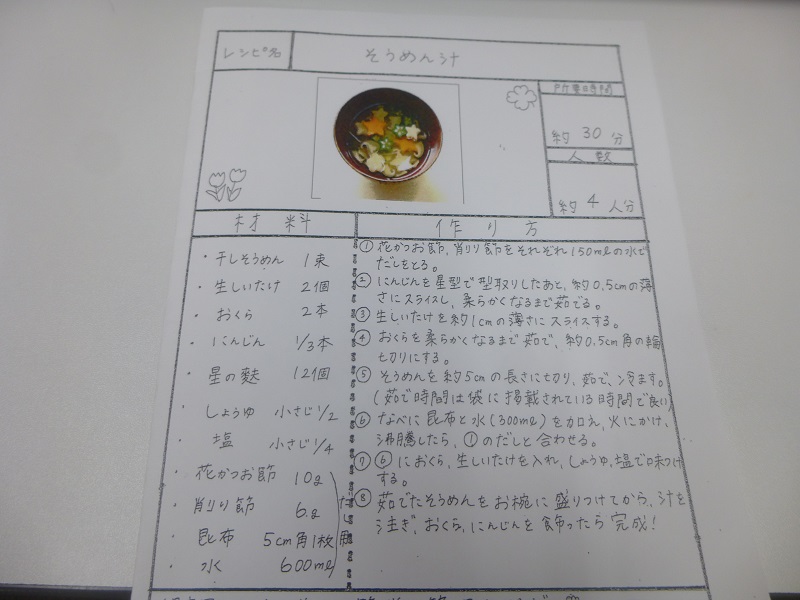 レシピ名
そうめん汁
所要時間
約 30 分
人数
約 4 人分
材料
・干しそうめん 1束
・生しいたけ 2個
・おくら 2本
・にんじん 1/3本
・星の麩 12個
・しょうゆ 小さじ1/2
・塩 小さじ1/4
・花かつお節 10g
・削り節 6g
・昆布 5cm角1枚
・水 600ml
だし用
作り方
① 花かつお節、削り節をそれぞれ150mlの水で
だしをとる。
② にんじんを星型で型取りしたあと、約0.5cmの薄
さにスライスし、柔らかくなるまで茹でる。
③ 生しいたけを約1cmの薄さにスライスする。
④ おくらを柔らかくなるまで茹で、約0.5cm角の輪
切りにする。
⑤ そうめんを約5cmの長さに切り、茹で、冷ます。
(茹で時間は袋に掲載されている時間で良い)
⑥ なべに昆布と水(300ml)を加え、火にかけ、
沸騰したら、①のだしと合わせる。
⑦ ⑥におくら、生しいたけを入れ、しょうゆ、塩で味つけ
する。
⑧ 茹でたそうめんをお椀に盛りつけてから、汁を
注ぎ、おくら、にんじんを飾ったら完成!